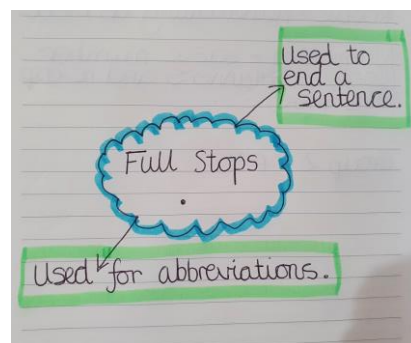 Used to
end a
sentence.
Full Stops
.
Used for abbreviations.